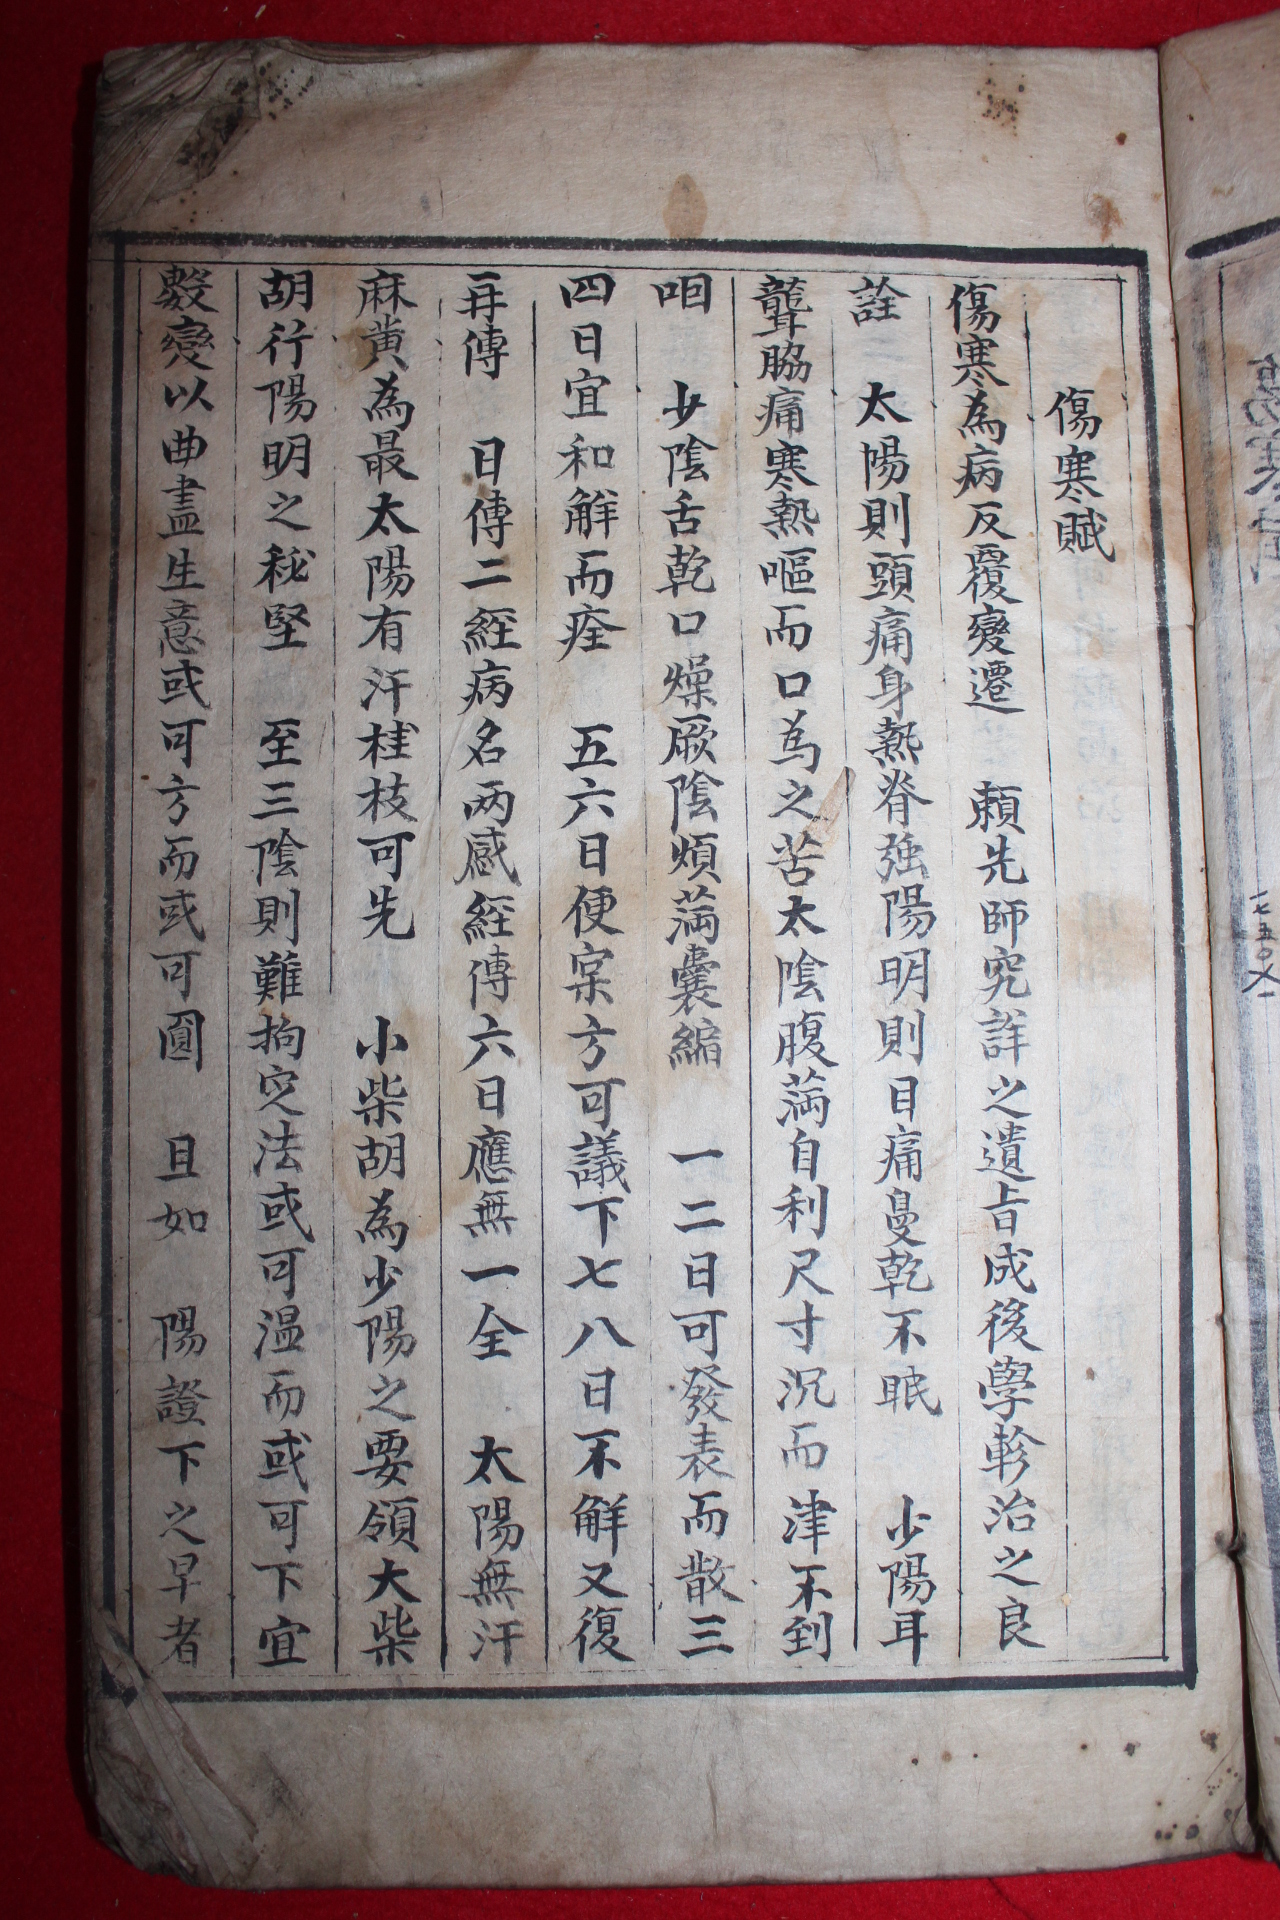 傷寒賦
傷寒為病反覆變遷 賴先師究詳之遺旨成後學軫治之良
詮 太陽則頭痛身熱脊強陽明則目痛曼乾不眠 少陽耳
聾脇痛寒熱嘔而口為之苦太陰腹滿自利尺寸沉而津不到
咽 少陰舌乾口燥厥陰煩滿囊縮 一二日可發表而散三
四日宜和解而痊 五六日便宲方可議下七八日不解又復
再傳 日傳二經病名两感經傳六日應無一全 太陽無汗
麻黄為最太陽有汗桂枝可先 小柴胡為少陽之要領大柴
胡行陽明之秘堅 至三陰則難拘㝎法或可温而或可下宜
數變以曲盡生意或可方而或可圓 且如 陽證下之早者